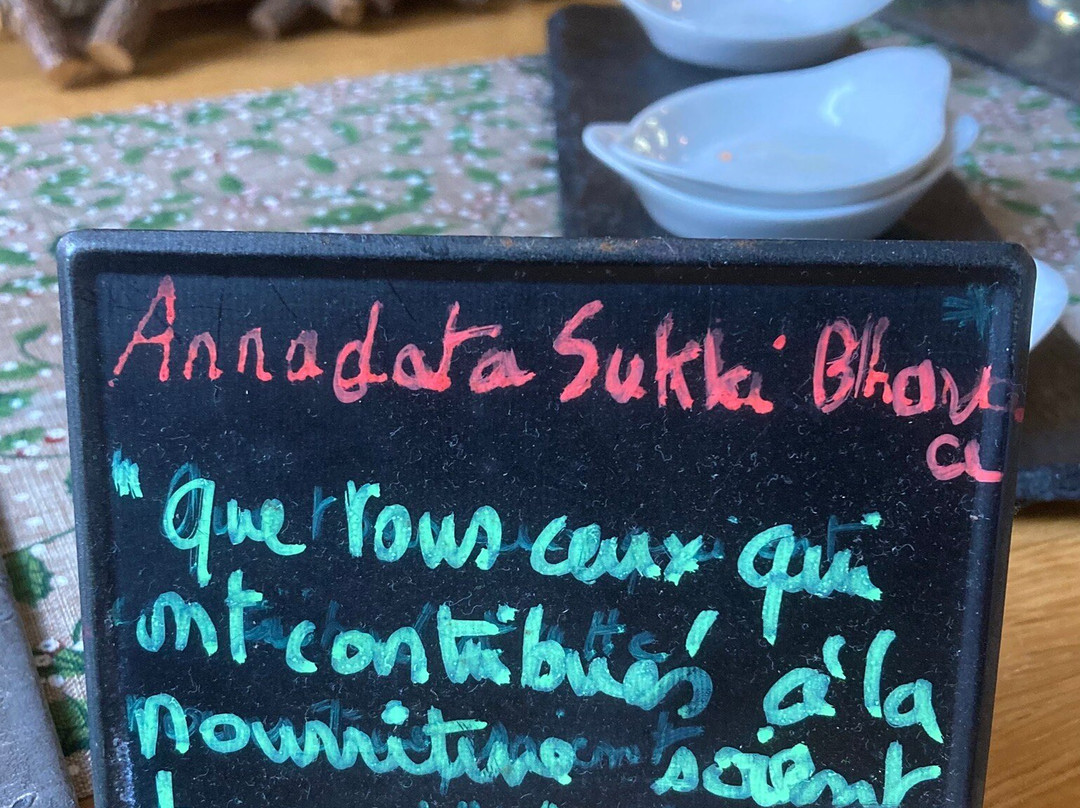 Annadata Sukki Bhava
a
"Que tous ceux qui
ont contribués à la
nourriture soient